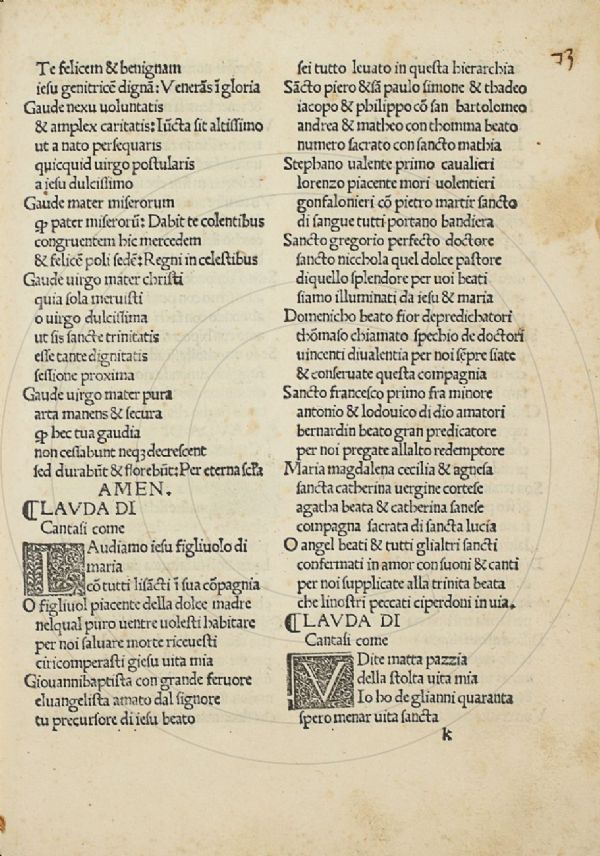 73
Te felicem & benignam
iesu genitricē dignā: Venerās ī gloria
Gaude nexu uoluntatis
& amplex caritatis: Iūcta sit altissimo
ut a nato persequaris
quicquid uirgo postularis
a iesu dulcissimo
Gaude mater miserorum
ꝙ pater miserorū: Dabit te colentibus
congruentem hic mercedem
& felicē poli sedē: Regni in celestibus
Gaude uirgo mater christi
quia sola meruisti
o uirgo dulcissima
ut sis sancte trinitatis
esse tante dignitatis
sessione proxima
Gaude uirgo mater pura
arta manens & secura
ꝙ hec tua gaudia
non cessabunt neqꝫ decrescent
sed durabūt & florebūt: Per eterna secla
AMEN.
⸿LAVDA DI
Cantasi come
LAudiamo iesu figliuolo di
maria
cō tutti lisācti ī sua cōpagnia
O figliuol piacente della dolce madre
nelqual puro uentre uolesti habitare
per noi saluare morte riceuesti
ci ricomperasti giesu uita mia
Giouannibaptista con grande feruore
eluangelista amato dal signore
tu precursore di iesu beato
sei tutto leuato in questa hierarchia
Sācto piero & sā paulo simone & thadeo
iacopo & philippo cō san bartolomeo
andrea & matheo con thomma beato
numero sacrato con sancto mathia
Stephano ualente primo caualieri
lorenzo piacente mori uolentieri
gonfalonieri cō pietro martir sancto
di sangue tutti portano bandiera
Sancto gregorio perfecto doctore
sancto nicchola quel dolce pastore
diquello splendore per uoi beati
siamo illuminati da iesu & maria
Domenicho beato fior depredichatori
thōmaso chiamato spechio de doctori
uincenti diualentia per noi sēpre siate
& conseruate questa compagnia
Sancto francesco primo fra minore
antonio & lodouico di dio amatori
bernardin beato gran predicatore
per noi pregate allalto redemptore
Maria magdalena cecilia & agnesa
sancta catherina uergine cortese
agatha beata & catherina sanese
compagna sacrata di sancta lucia
O angel beati & tutti glialtri sancti
confermati in amor con suoni & canti
per noi supplicate alla trinita beata
che linostri peccati ciperdoni in uia.
⸿LAVDA DI
Cantasi come
VDite matta pazzia
della stolta uita mia
Io ho de glianni quaranta
spero menar uita sancta
k